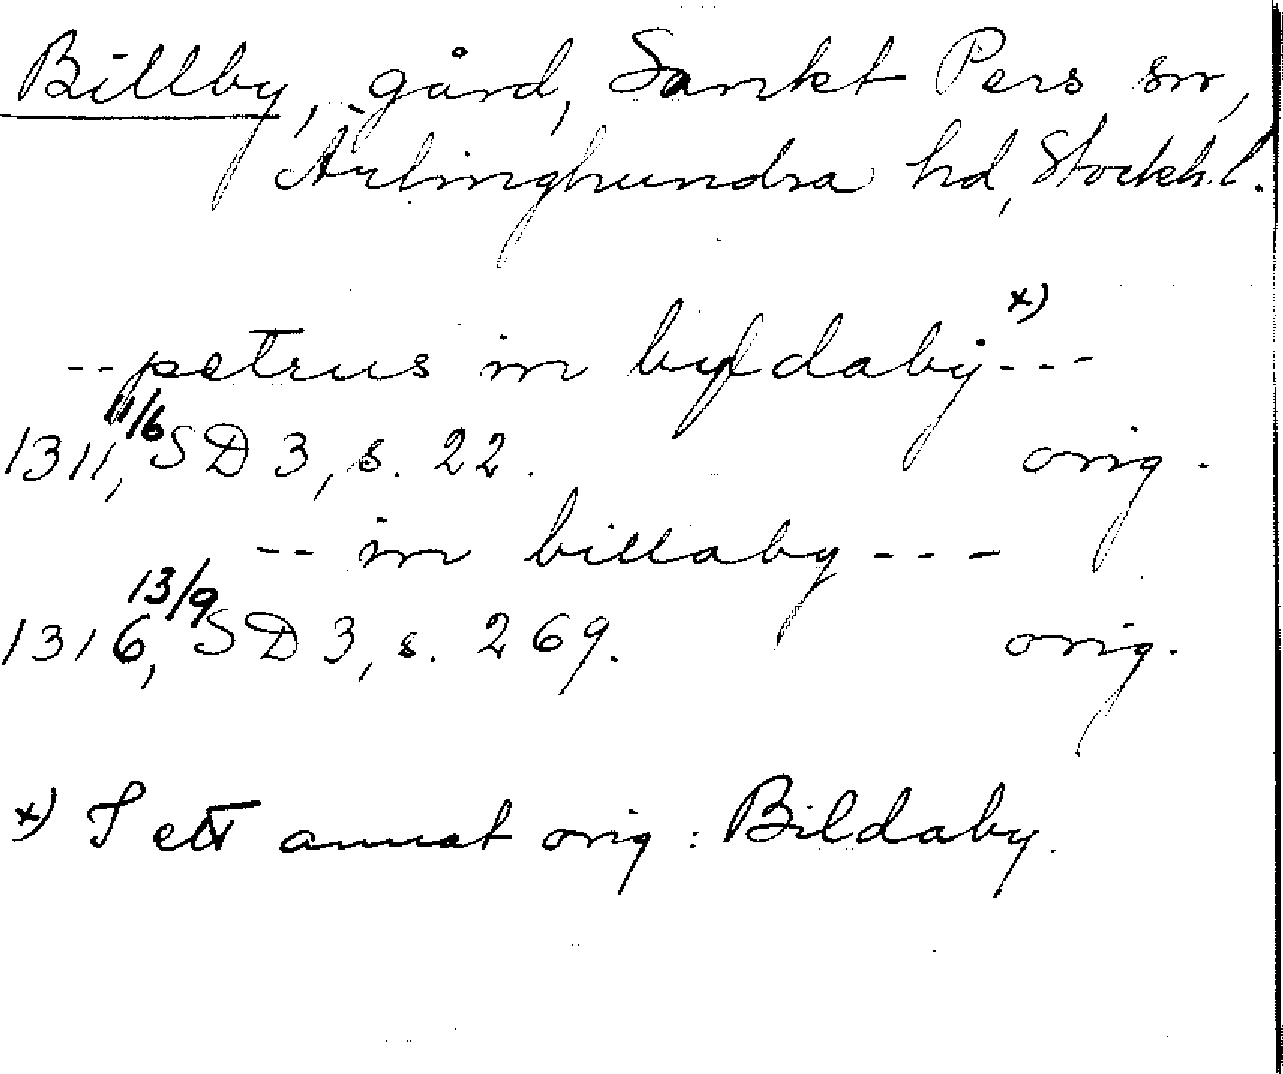 Billby, gård, Sankt Pers sn,
Ärlinghundra hd, Stockh.l.
-- petrus in byldaby x) ---
1311, 11/6 SD 3, s. 22. orig.
-- in billaby ---
1316, 13/9 SD 3, s. 269. orig.
x) I ett annat orig: Bildaby.